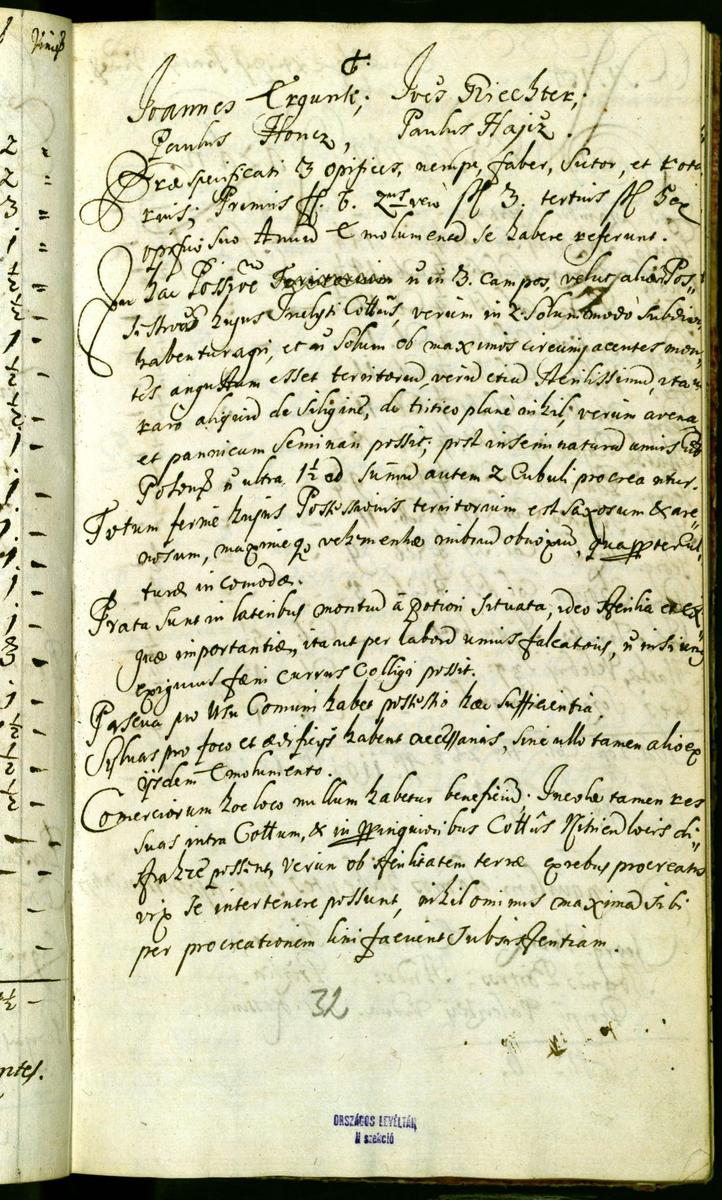 Vini
Joannes Ergunk; Joes Riechter;
Paulus Honcz, Paulus Hajcz.
Præ specificati 3 opifices, nempe, faber, Sutor, et rota
rius; Primus ff. 6. 2dus vero ff 3. tertius ff 5 ex
opificio suo Annuu Emolumentu se habere referunt.
In hac Possne Territorium n in 3. Campos, velut aliæ Pos
sistrorum hujus Inclyti Cottus, verum in 2 solummodo subdivisi
habentur agri, et n solum ob maximos circumjacentes mon
tes angustum esset territoriu, veru etiu sterilissimu, ita ut
raro aliquid de siligine, de tritico plane nihil; verum avena
et pannicum seminari possit; post inseminaturu unius Cub
Poson n ultra 1½ ad sumu autem 2 Cubuli procreantur.
Totum ferme hujus Possessionis territorium est saxosum & are
nosum, maximeq vehementiæ imbriu obnoxiu, quappter Cul
turæ incomodæ.
Prata sunt in lateribus montiu à potiori situata, ideo sterilia et exi
guæ importantiæ, ita ut per laboru unius falcatoris, n nisi unus
exiguus fœni currus Colligi possit.
Pascua pro Usu Comuni habet possessio hæc sufficientia.
Sylvas pro foco et ædificijs habent necessarias, sine ullo tamen alio ex
ijsdem Emolumento.
Comerciorum hoc loco nullum habetur beneficiu; Incolæ tamen res
suas intra Cottum, & in ppinquioribus Cottus Nitriens locis di
strahere possint, verum ob sterilitatem terræ ex rebus procreatis
vix se intertenere possunt, nihilominus maximã sibi
per procreationem lini faciunt subsistentiam.
32
ORSZÁGOS LEVÉLTÁR
N szekció